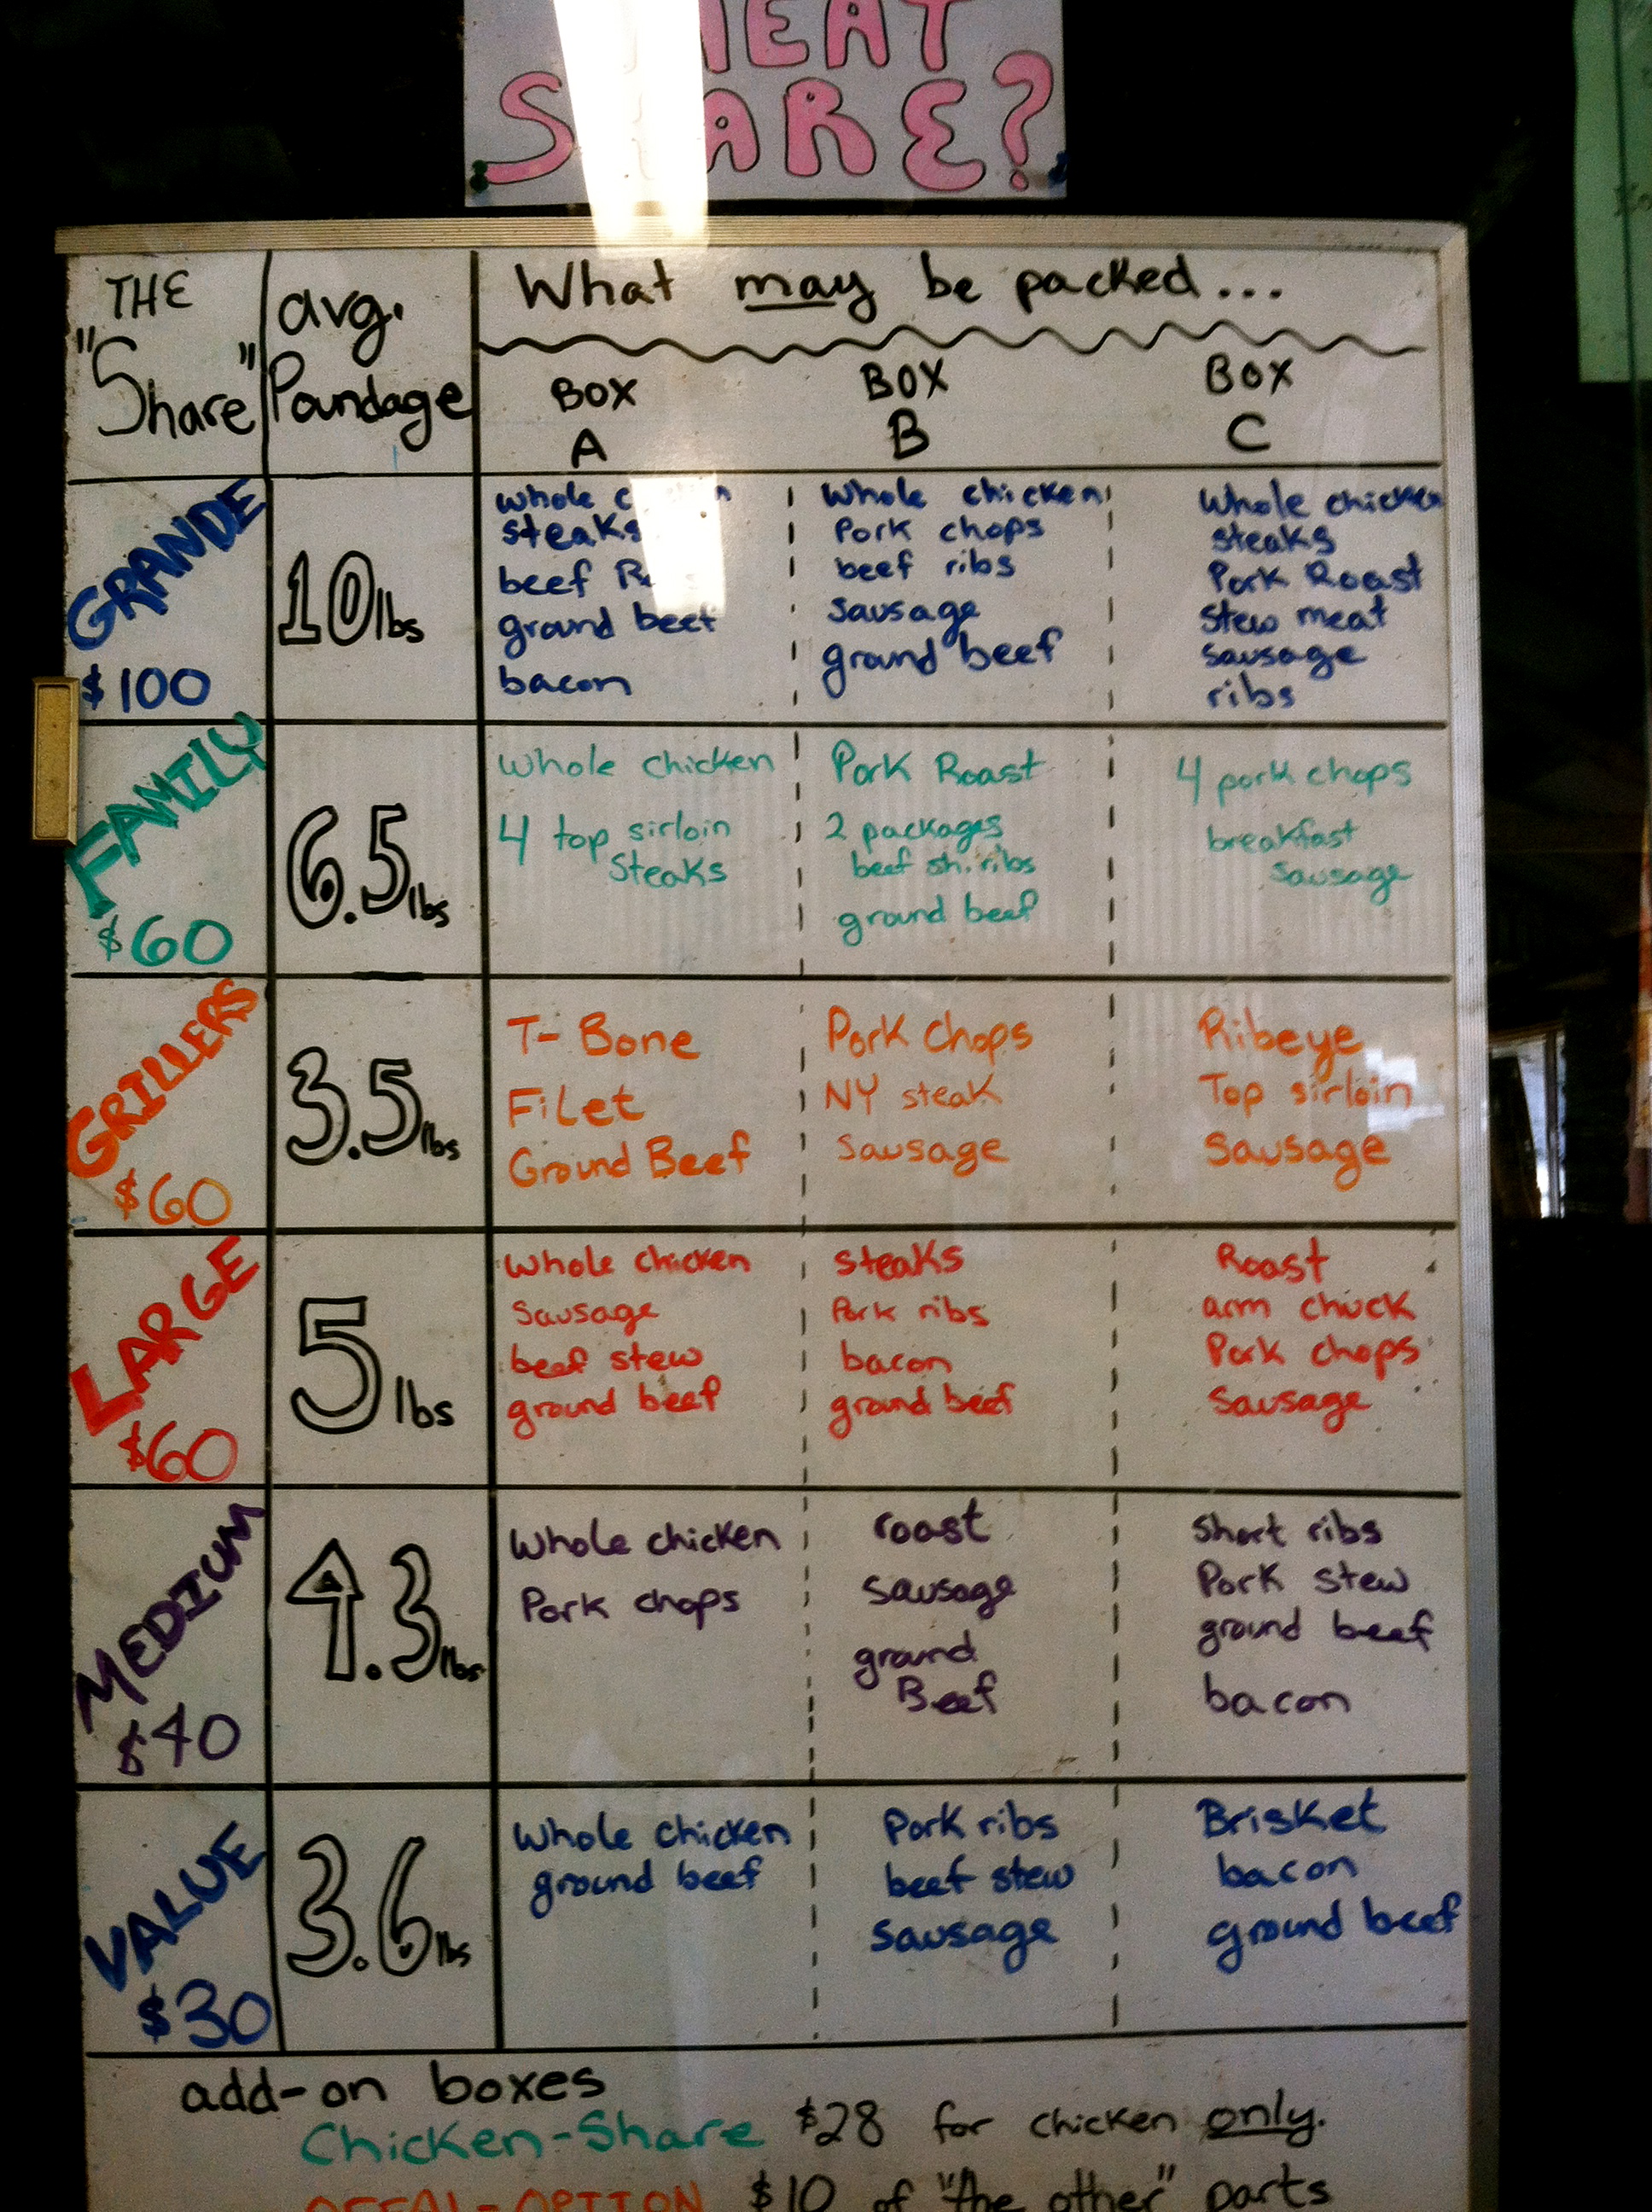 MEAT
SHARE?
THE "Share"
avg. Poundage
What may be packed...
BOX A
BOX B
BOX C
GRANDE
$100
10 lbs
whole
steaks
beef
ground beef
bacon
Whole chicken
Pork chops
beef ribs
sausage
ground beef
Whole chicken
steaks
Pork Roast
Stew meat
sausage
ribs
FAMILY
$60
6.5 lbs
Whole chicken
4 top sirloin
Steaks
Pork Roast
2 packages
beef sh. ribs
ground beef
4 pork chops
breakfast
sausage
GRILLERS
$60
3.5 lbs
T-Bone
FiLet
Ground Beef
Pork Chops
NY steak
Sausage
Ribeye
Top sirloin
Sausage
LARGE
$60
5 lbs
Whole chicken
Sausage
beef stew
ground beef
steaks
Pork ribs
bacon
ground beef
Roast
arm chuck
Pork chops
Sausage
MEDIUM
$40
4.3 lbs
Whole chicken
Pork chops
roast
sausage
ground
Beef
Short ribs
Pork stew
ground beef
bacon
VALUE
$30
3.6 lbs
Whole chicken
ground beef
Pork ribs
beef stew
sausage
Brisket
bacon
ground beef
add-on boxes
Chicken-Share $28 for chicken only.
OFFAL-OPTION $10 of "the other" parts